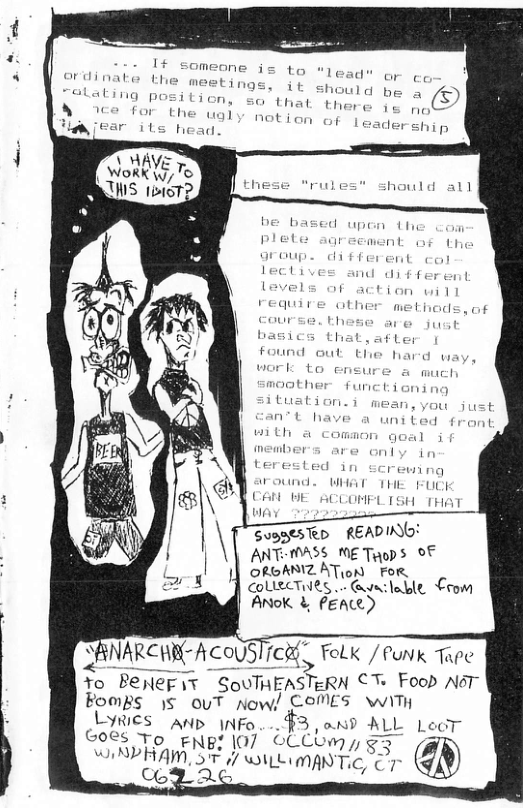 ... If someone is to "lead" or co-
ordinate the meetings, it should be a
rotating position, so that there is no
nce for the ugly notion of leadership
ear its head.
5
I HAVE TO
WORK W/
THIS IDIOT?
these "rules" should all
be based upon the com-
plete agreement of the
group. different col-
lectives and different
levels of action will
require other methods,of
course.these are just
basics that,after I
found out the hard way,
work to ensure a much
smoother functioning
situation.i mean,you just
can't have a united front
with a common goal if
members are only in-
terested in screwing
around. WHAT THE FUCK
CAN WE ACCOMPLISH THAT
WAY ?????????
BEER
SUGGESTED READING:
ANTI-MASS METHODS OF
ORGANIZATION FOR
COLLECTIVES... (available from
ANOK & PEACE)
"ANARCHO-ACOUSTICO" FOLK / PUNK TAPE
to BENEFIT SOUTHEASTERN CT. FOOD NOT
BOMBS IS OUT NOW! COMES WITH
LYRICS AND INFO... $3, AND ALL LOOT
GOES TO FNB: 107 OCCUM // 83
WINDHAM, ST // WILLIMANTIC, CT
06226